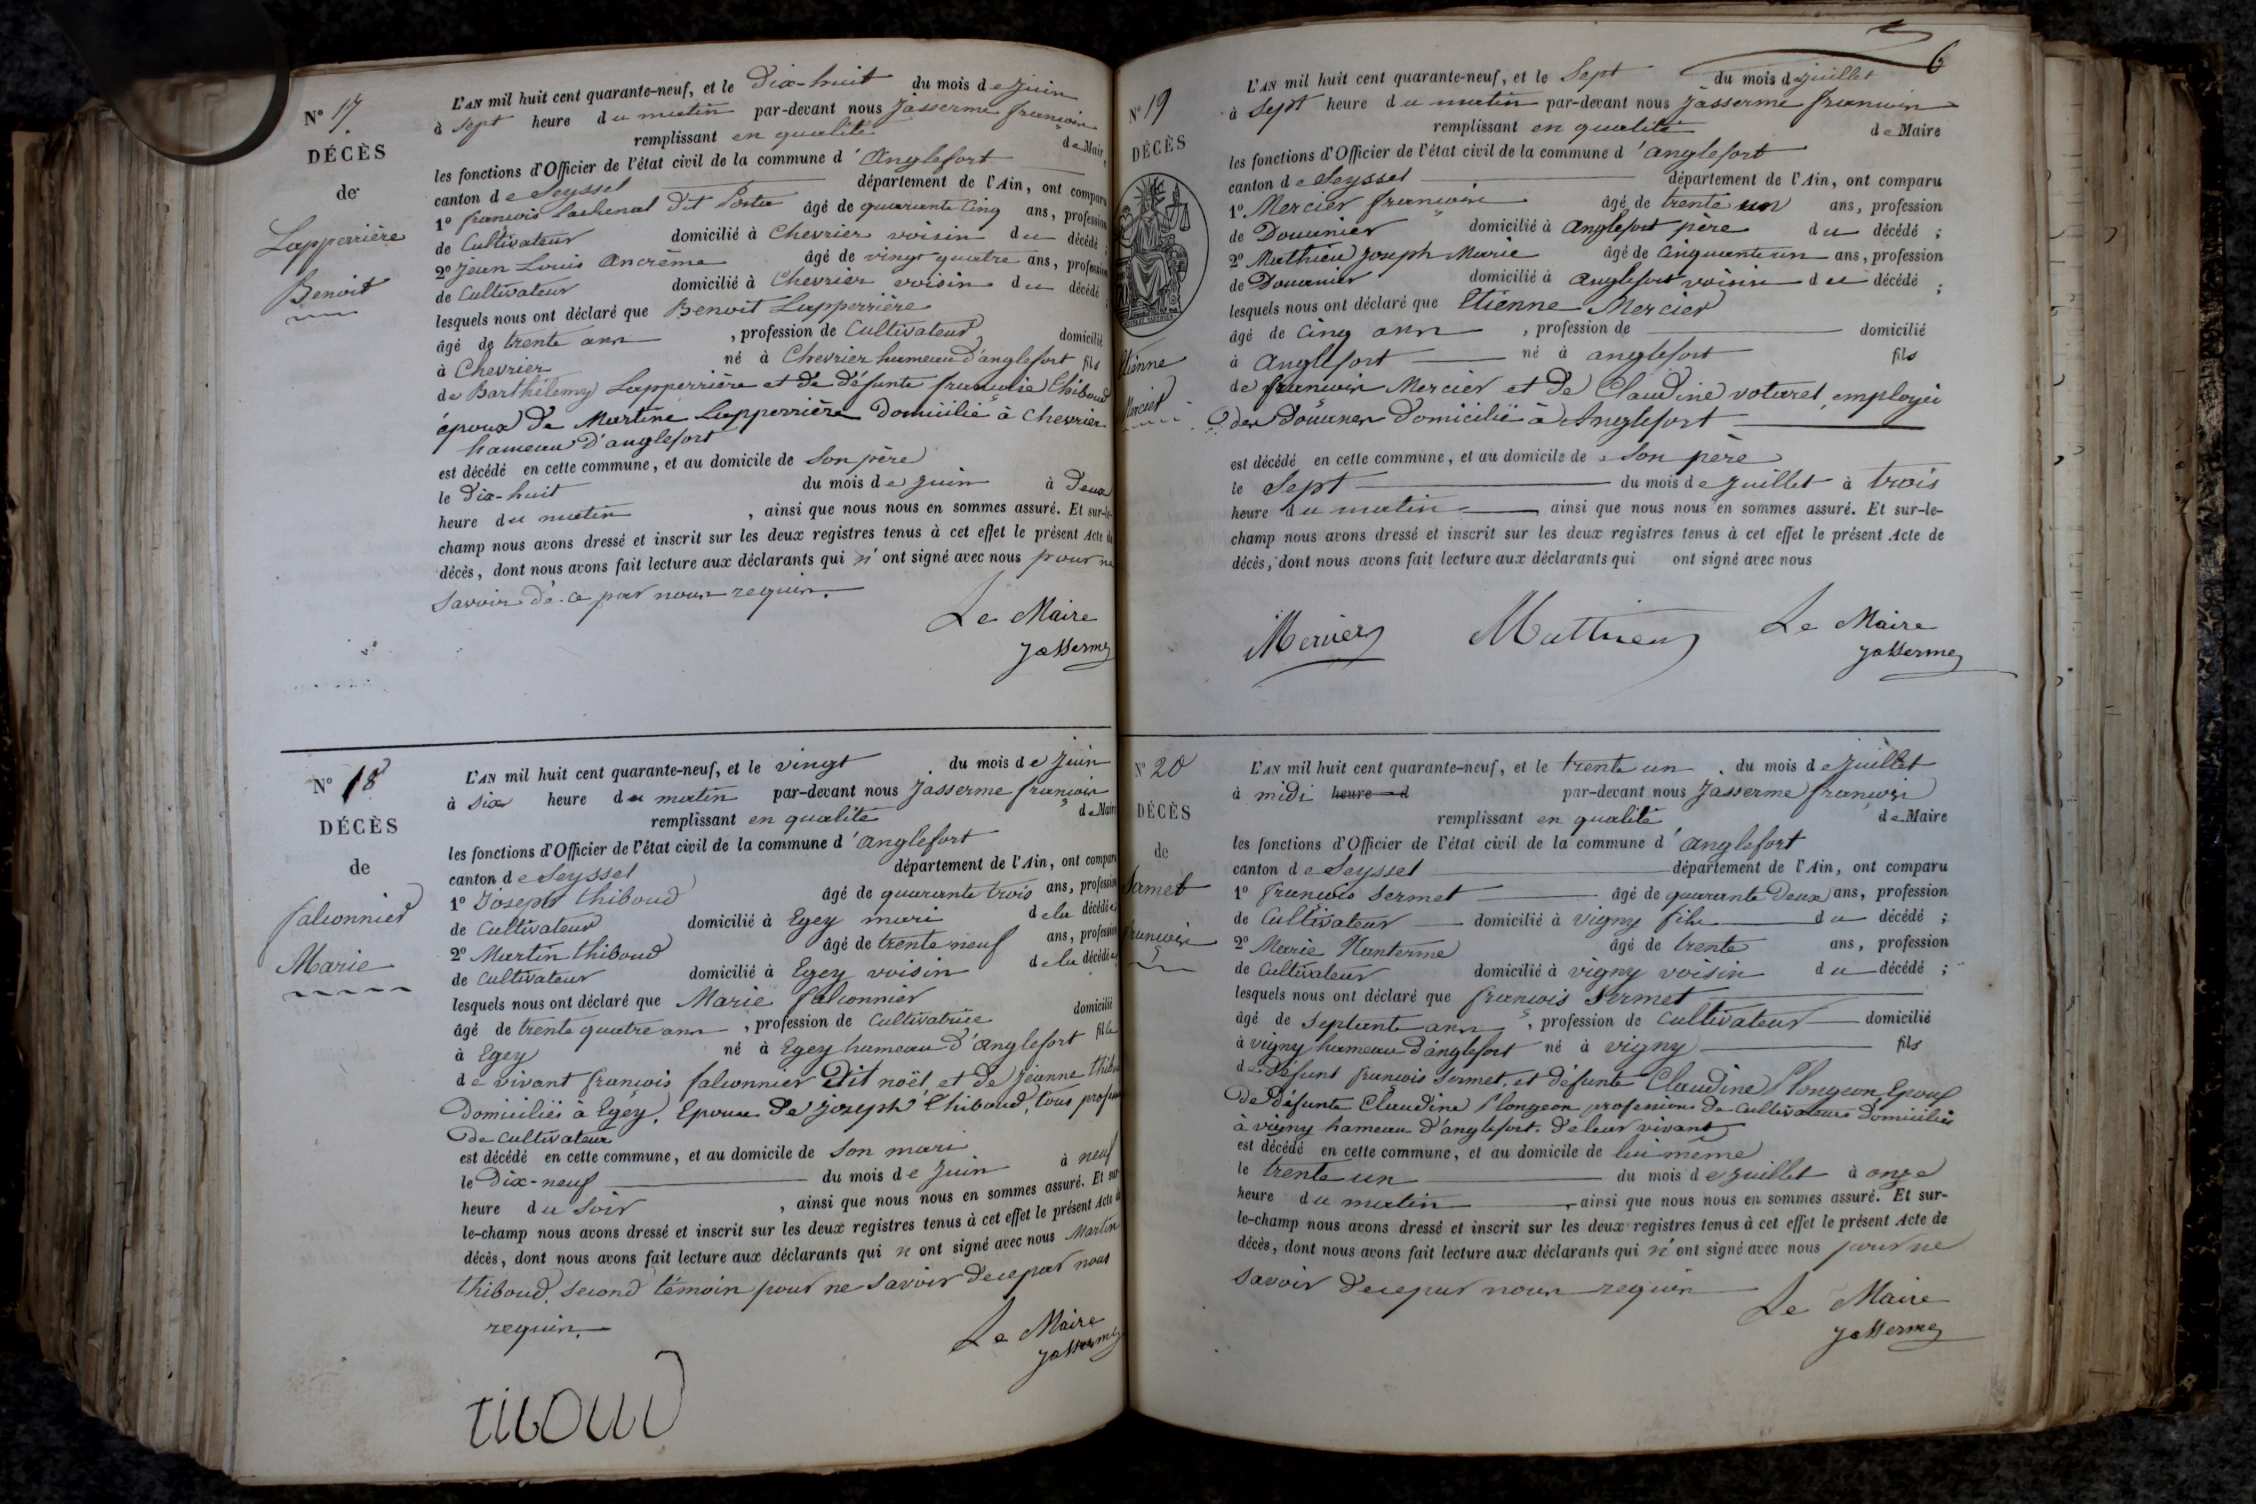 N.º 17.
DÉCÈS
de
Lapperrière
Benoit
L'AN mil huit cent quarante-neuf, et le Dix-huit du mois de juin
à sept heure du matin par-devant nous Jasserme françois
remplissant en qualité de Maire
les fonctions d'Officier de l'état civil de la commune d'anglefort
canton de Seyssel département de l'Ain, ont comparu
1º françois Lachenal dit Porta âgé de quarante cinq ans, profession
de Cultivateur domicilié à Chevrier voisin du décédé ;
2º Jean Louis Ancrème âgé de vingt quatre ans, profession
de Cultivateur domicilié à Chevrier voisin du décédé ;
lesquels nous ont déclaré que Benoit Lapperrière
âgé de trente ans , profession de Cultivateur domicilié
à Chevrier né à Chevrier hameau d'anglefort fils
de Barthélemy Lapperrière et de défunte françoise Thiboud
époux de Martine Lapperrière Domicilié à Chevrier
hameau d'anglefort
est décédé en cette commune, et au domicile de son père
le dix-huit du mois de juin à Deux
heure du matin , ainsi que nous nous en sommes assuré. Et sur-le-
champ nous avons dressé et inscrit sur les deux registres tenus à cet effet le présent Acte de
décès, dont nous avons fait lecture aux déclarants qui n'ont signé avec nous pour ne
savoir de ce par nous requis.
Le Maire
Jasserme
N.º 18
DÉCÈS
de
falconnier
Marie
L'AN mil huit cent quarante-neuf, et le vingt du mois de juin
à six heure du matin par-devant nous Jasserme françois
remplissant en qualité de Maire
les fonctions d'Officier de l'état civil de la commune d'anglefort
canton de Seyssel département de l'Ain, ont comparu
1º Joseph thiboud âgé de quarante trois ans, profession
de Cultivateur domicilié à Egey mari de la décédée
2º Martin thiboud âgé de trente neuf ans, profession
de Cultivateur domicilié à Egey voisin de la décédée
lesquels nous ont déclaré que Marie falconnier
âgé de trente quatre ans , profession de Cultivatrice domicilié
à Egey né à Egey hameau d'anglefort fille
de vivant françois falconnier Dit noël et de jeanne thiboud
Domiciliés à Egey. Epoux de joseph Thiboud, tous profession
de cultivateur
est décédé en cette commune, et au domicile de son mari
le Dix-neuf du mois de juin à neuf
heure du soir , ainsi que nous nous en sommes assuré. Et sur-
le-champ nous avons dressé et inscrit sur les deux registres tenus à cet effet le présent Acte de
décès, dont nous avons fait lecture aux déclarants qui n ont signé avec nous Martin
thiboud, second témoin pour ne savoir de ce par nous
requis.
Le Maire
Jasserme
N.º 19
DÉCÈS
Etienne
Mercier
6
L'AN mil huit cent quarante-neuf, et le sept du mois de juillet
à sept heure du matin par-devant nous Jasserme françois
remplissant en qualité de Maire
les fonctions d'Officier de l'état civil de la commune d'anglefort
canton de Seyssel département de l'Ain, ont comparu
1º Mercier françois âgé de trente un ans, profession
de Douanier domicilié à anglefort père du décédé ;
2º Mathieu Joseph Marie âgé de cinquante un ans, profession
de Douanier domicilié à anglefort voisin du décédé ;
lesquels nous ont déclaré que Etienne Mercier
âgé de cinq ans , profession de domicilié
à Anglefort né à anglefort fils
de françois Mercier et de Claudine voturet, employé
des Douanes Domicilié à Anglefort
est décédé en cette commune, et au domicile de son père
le sept du mois de juillet à trois
heure du matin ainsi que nous nous en sommes assuré. Et sur-le-
champ nous avons dressé et inscrit sur les deux registres tenus à cet effet le présent Acte de
décès, dont nous avons fait lecture aux déclarants qui ont signé avec nous
Mercier Mathieu Le Maire
Jasserme
Nº 20
DÉCÈS
de
Sermet
françois
L'AN mil huit cent quarante-neuf, et le trente un du mois de juillet
à midi heure d par-devant nous Jasserme françois
remplissant en qualité de Maire
les fonctions d'Officier de l'état civil de la commune d'anglefort
canton de Seyssel département de l'Ain, ont comparu
1º françois Sermet âgé de quarante Deux ans, profession
de Cultivateur domicilié à vigny fils du décédé ;
2º Marie Nanterme âgé de trente ans, profession
de Cultivateur domicilié à vigny voisin du décédé ;
lesquels nous ont déclaré que françois Sermet
âgé de septante ans , profession de Cultivateur domicilié
à vigny hameau d'anglefort né à vigny fils
de Défunt françois Sermet, et défunte Claudine Plongeon Epoux
de Défunte Claudine Plongeon profession de Cultivateurs Domiciliés
à vigny hameau d'anglefort de leur vivant
est décédé en cette commune, et au domicile de lui même
le trente un du mois de juillet à onze
heure du matin , ainsi que nous nous en sommes assuré. Et sur-
le-champ nous avons dressé et inscrit sur les deux registres tenus à cet effet le présent Acte de
décès, dont nous avons fait lecture aux déclarants qui n'ont signé avec nous pour ne
savoir de ce par nous requis
Le Maire
Jasserme